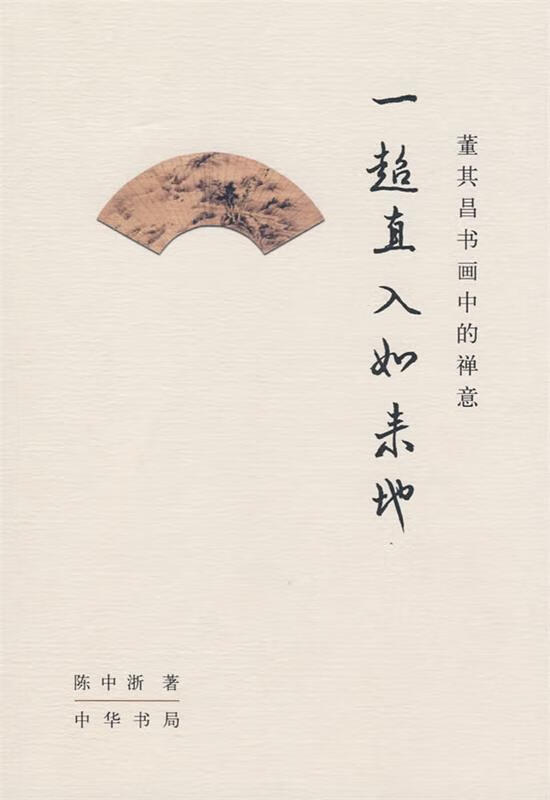 董其昌书画中的禅意
一超直入如来地
陈中浙 著
中华书局